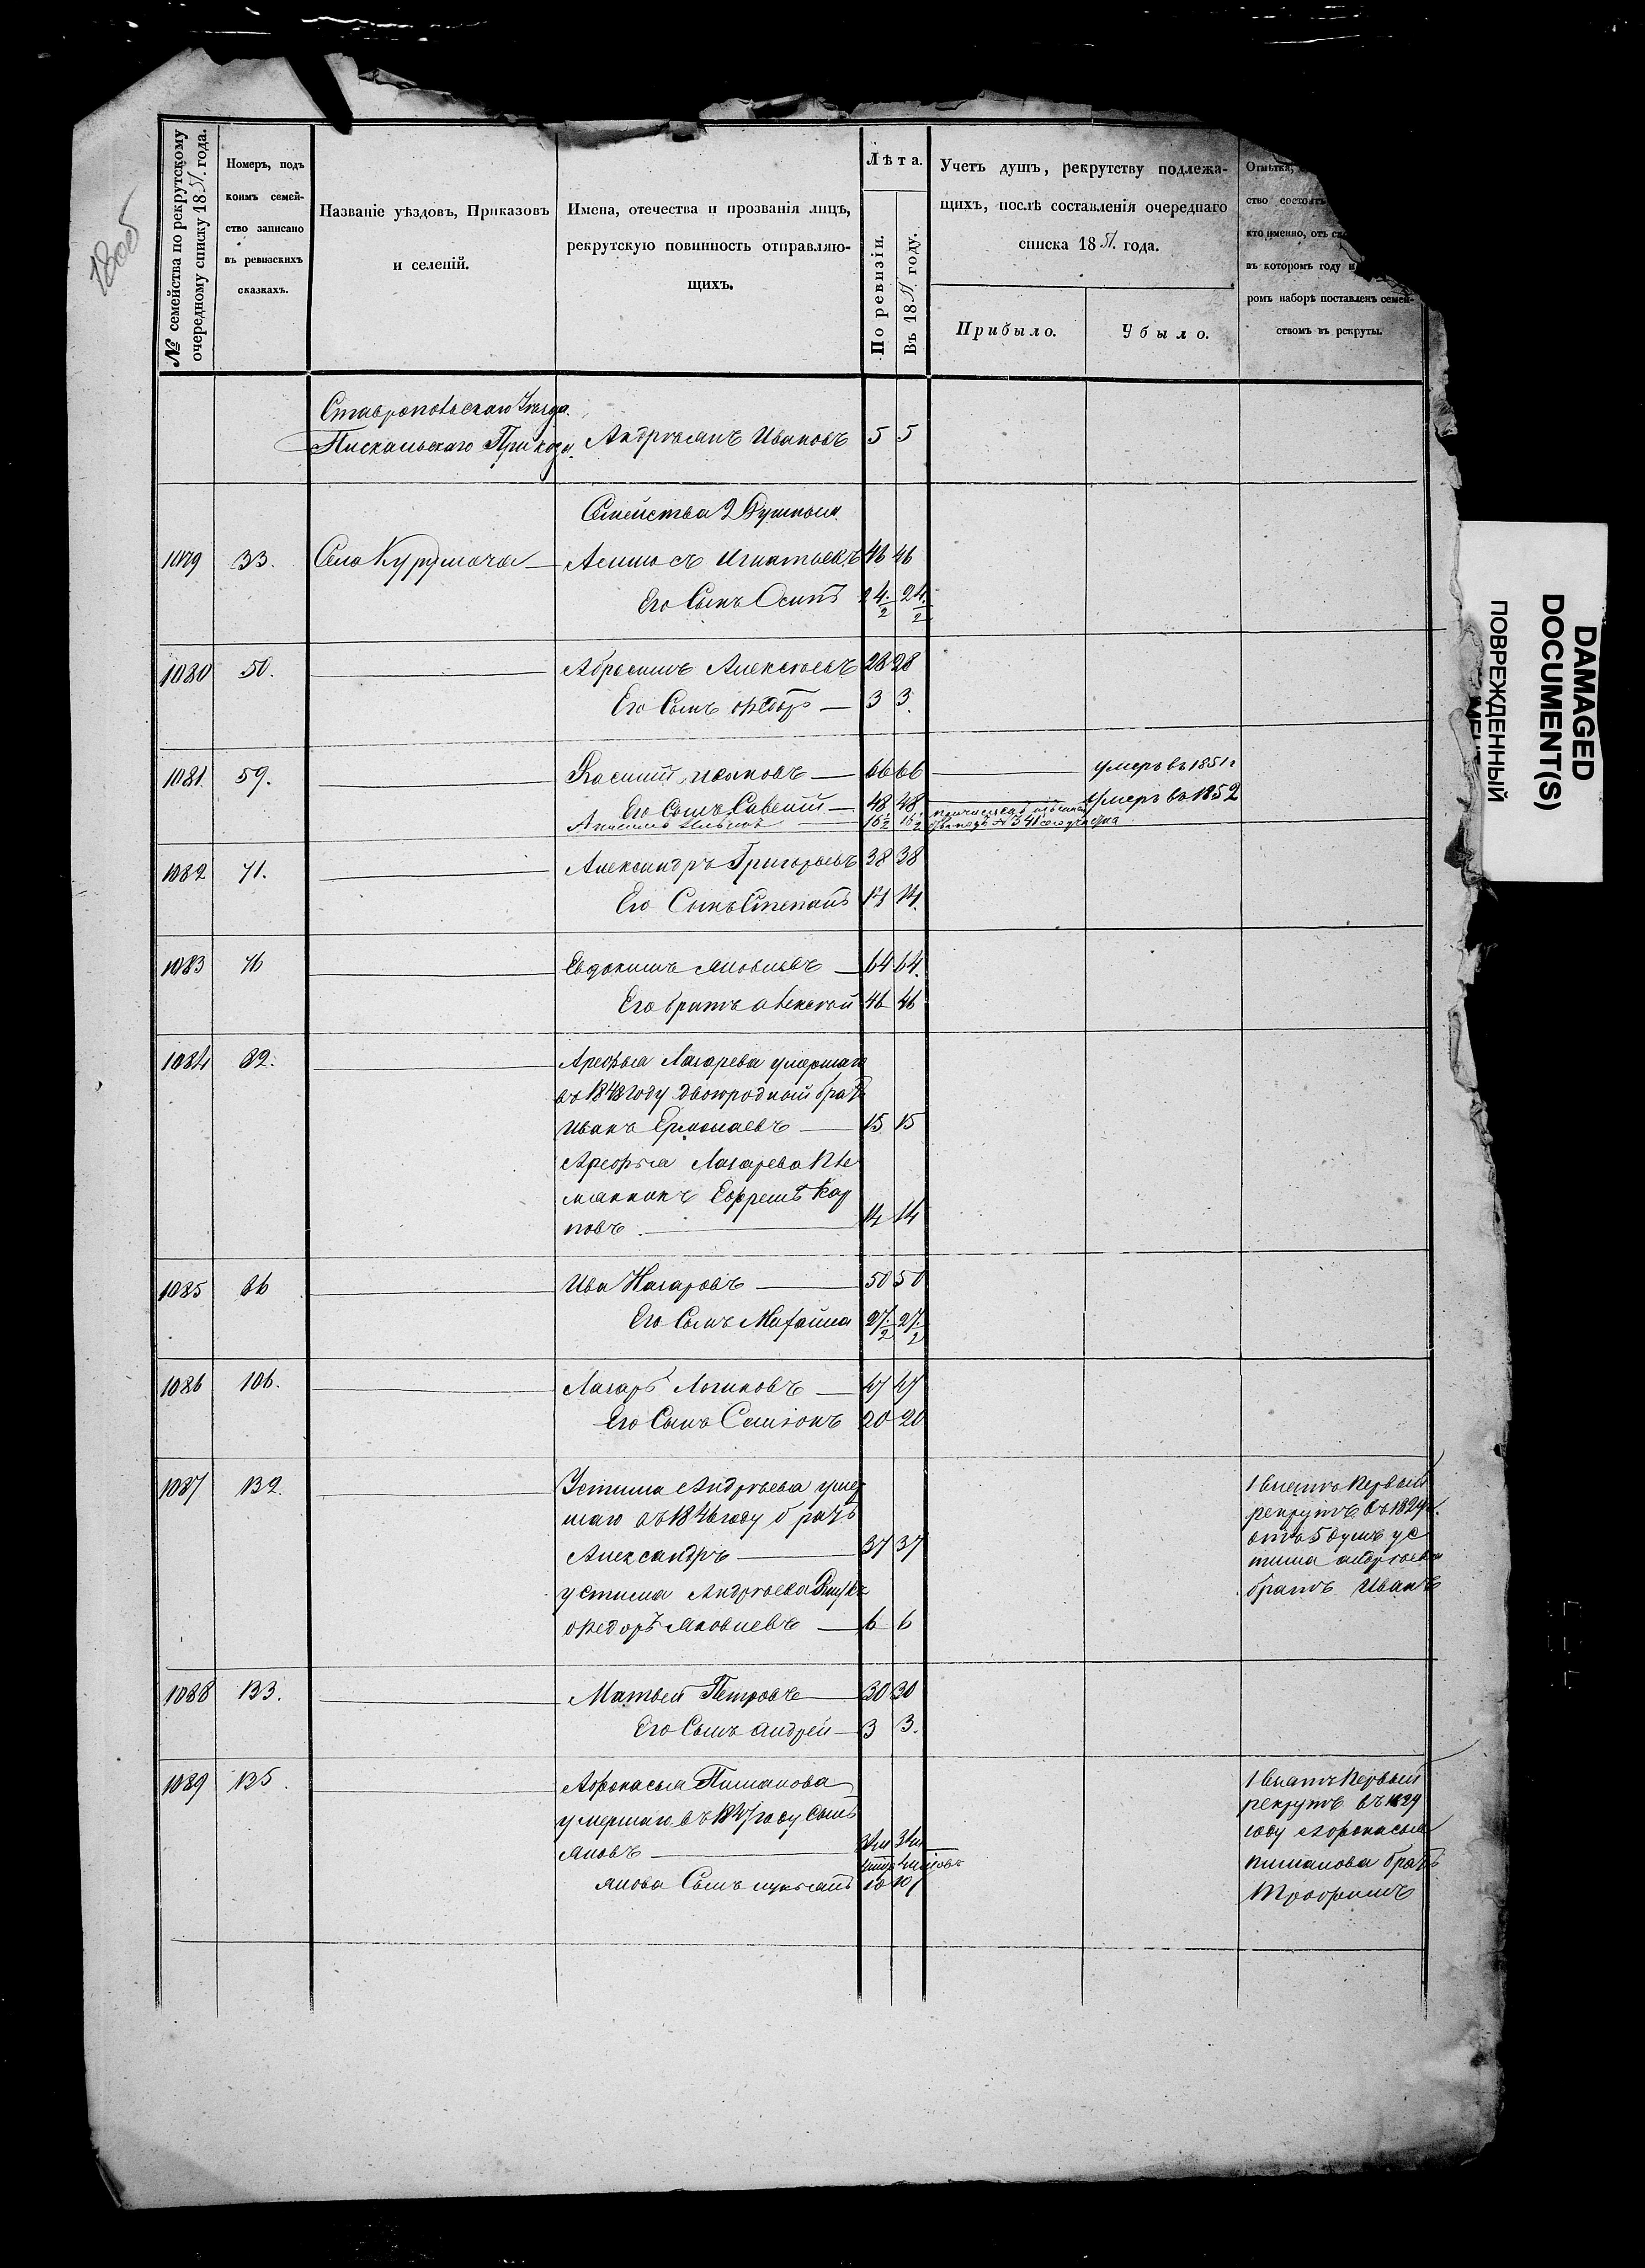 1805
№ семейства по рекрутскому очередному списку 1851. года.
Номеръ, подъ
коимъ семей-
ство записано
въ ревизскихъ
сказкахъ.
Названіе уѣздовъ, Приказовъ
и селеній.
Имена, отечества и прозванія лицъ,
рекрутскую повинность отправляю-
щихъ.
Лѣта.
По ревизіи.
Въ 1851 году.
Учетъ душъ, рекрутству подлежа-
щихъ, послѣ составленія очереднаго
списка 1851. года.
Прибыло.
Убыло.
Отмѣтки,
ство состоитъ
кто именно, отъ
въ которомъ году и
ромъ наборѣ поставленъ семей-
ствомъ въ рекруты.
Ставропольскаго Уѣзда.
Пискальскаго Приказа. Андреянъ Ивановъ 5 5
Семейства 2 Душныя
1079 33. Село Курумоча Игнатьевъ 46 46
Его Сынъ Осипъ 24. 24.
2 2
1080 50. Абросимъ Алексѣевъ 28 28
Его Сынъ Ѳедоръ 3 3.
1081 59. Ивановъ 66 66 умеръ въ 1851 г
Его Сынъ Савелій 48 48 Умеръ въ 1852
16/2 16/2 № 541
1082 71. Александръ Григорьевъ 38 38
Его Сынъ Степанъ 14 14.
1083 76 Евдокимъ Яковлевъ 64 64.
Его братъ Алексѣй 46 46
1084 82. Арефья Лазарева умершаго
въ 1848 году двоюродный братъ
Иванъ Ермолаевъ 15 15
Арефья Лазарева Пле
мянникъ Ефремъ Кар
повъ 14 14
1085 86 Ива Назаровъ 50 50
Его Сынъ Михайла 27. 27.
2 2
1086 106. Лазарь Логиновъ 47 47
Его Сынъ Самсонъ 20 20
1087 132. Устима Андреева умер
шаго въ 1846 году братъ
Александръ 37 37
Устима Андреева Внукъ
Ѳедоръ Яковлевъ 6 6
1 Взятъ Первый
рекрутъ въ 1829 г.
отъ 5 душъ ус
тима Андреева
братъ Иванъ
1088 133. Матвей Петровъ 30 30
Его Сынъ Андрей 3 3.
1089 135. Афонасья Пиманова
умершаго въ 1847 году Сынъ
Яковъ
Якова Сынъ Лукьянъ 10 10
1 Взятъ Первый
рекрутъ въ 1829
году Афонасья
Пиманова братъ
Трофимъ
DAMAGED
DOCUMENT(S)
ПОВРЕЖДЕННЫЙ